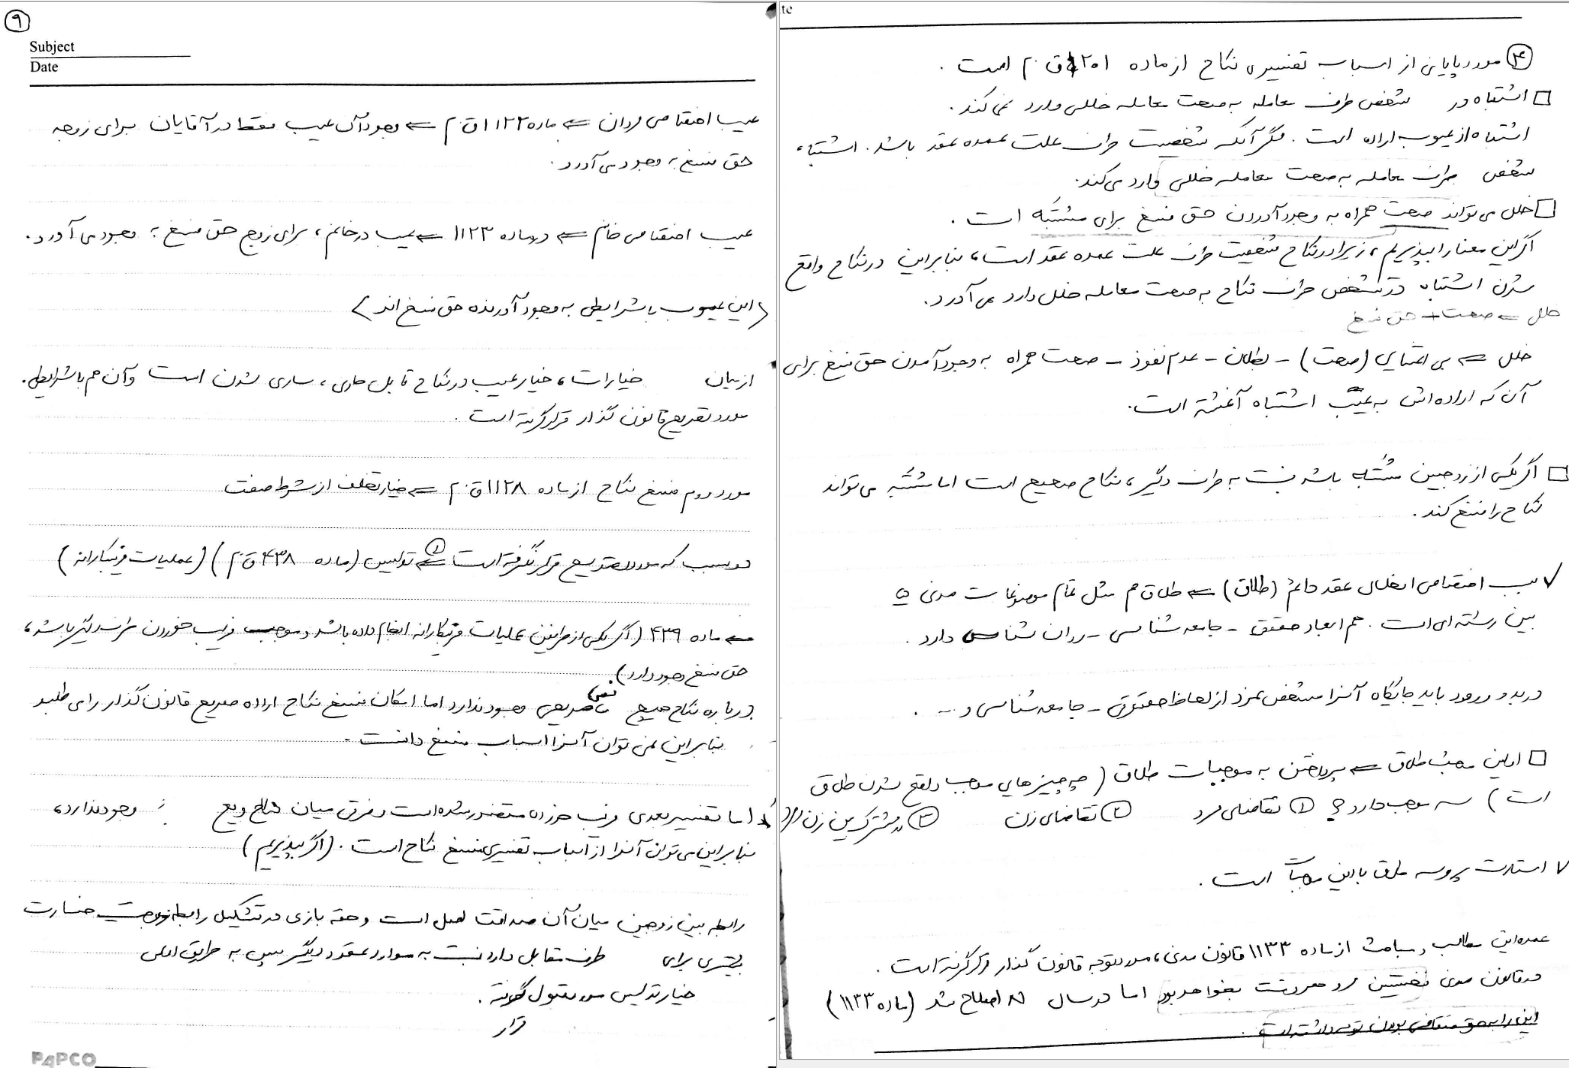 ۹
Subject
Date
عیب اختصاصی مردان ⇐ ماده ۱۱۲۲ ق.م ⇐ وجود آن عیب فقط در آقایان برای زوجه
حق فسخ به وجود می آورد.
عیب اختصاصی خانم ⇐ در ماده ۱۱۲۳ ⇐ عیب در خانم، برای زوج حق فسخ به وجود می آورد.
(این عیوب با شرایطی به وجود آورنده حق فسخ اند)
از میان خیارات، خیار عیب در نکاح قابل جاری، ساری شدن است و آن هم با شرایطی.
مورد تصریح قانون گذار قرار گرفته است.
مورد دوم فسخ نکاح از ماده ۱۱۲۸ ق.م ⇐ خیار تخلف از شرط صفت
دو سبب که مورد تصریح قرار نگرفته است ⇐ ① تدلیس (ماده ۴۳۸ ق.م) (عملیات فریبکارانه)
⇐ ماده ۴۳۹ (اگر یکی از طرفین عملیات فریبکارانه انجام داده باشد و موجب فریب خوردن طرف دیگر باشد،
حق فسخ وجود دارد)
درباره نکاح هیچ نص صریحی وجود ندارد اما امکان فسخ نکاح اراده صریح قانون گذار را می طلبد
بنابراین نمی توان آنرا اسباب فسخ دانست.
اما تفسیر بعدی فریب خورده متضرر شده است و فرقی میان نکاح و بیع وجود ندارد،
بنابراین می توان آنرا از اسباب تفسیری فسخ نکاح است. (اگر بپذیریم)
رابطه بین زوجین میان آن صداقت اصل است و حقه بازی در تشکیل رابطه زوجیت خسارت
بیشتری برای طرف مقابل دارد نسبت به موارد عقود دیگر پس به طریق اولی
خیار تدلیس مورد قبول گرفته.
قرار
PAPCO
te
④ مورد پایانی از اسباب تفسیری نکاح از ماده ۲۰۱ ق.م است.
□ اشتباه در شخص طرف معامله به صحت معامله خللی وارد نمی کند.
اشتباه از عیوب اراده است. مگر آنکه شخصیت طرف علت عمده عقد باشد. اشتباه
شخص طرف معامله به صحت معامله خللی وارد می کند.
□ خلل می تواند صحت همراه به وجود آوردن حق فسخ برای مشتبه است.
اگر این معنا را بپذیریم، زیرا در نکاح شخصیت طرف علت عمده عقد است، بنابراین در نکاح واقع
شدن اشتباه در شخص طرف نکاح به صحت معامله خلل وارد می آورد.
خلل ⇐ صحت + حق فسخ
خلل ⇐ بی اعتنایی (صحت) - بطلان - عدم نفوذ - صحت همراه به وجود آمدن حق فسخ برای
آن که اراده اش به عیب اشتباه آغشته است.
□ اگر یکی از زوجین مشتبه باشد نسبت به طرف دیگر، نکاح صحیح است اما مشتبه می تواند
نکاح را فسخ کند.
✓ سبب اختصاصی انحلال عقد دائم (طلاق) ⇐ طلاق هم مثل تمام موضوعات مدنی
بین رشته ای است. هم ابعاد حقوقی - جامعه شناسی - روان شناسی دارد.
در بدو ورود باید جایگاه آنرا مشخص نمود از لحاظ حقوقی - جامعه شناسی و ... .
□ اولین مبحث طلاق ⇐ پرداختن به موجبات طلاق (چه چیزهایی موجب واقع شدن طلاق
است) سه موجب دارد: ① تقاضای مرد ② تقاضای زن ③ مشترک بین زن و مرد
✓ استارت پروسه طلاق با این موجبات است.
عمده این مطالب و مباحث از ماده ۱۱۳۳ قانون مدنی، مورد توجه قانون گذار قرار گرفته است.
در قانون مدنی نخستین مرد هر وقت بخواهد بود اما در سال ۸۱ اصلاح شد (ماده ۱۱۳۳)